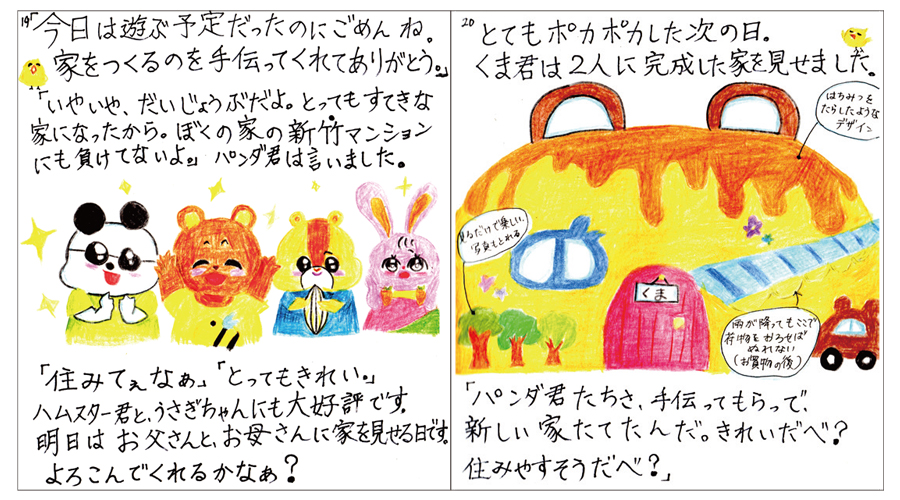 19
「今日は遊ぶ予定だったのにごめんね。
家をつくるのを手伝ってくれてありがとう。」
「いやいや、だいじょうぶだよ。とってもすてきな
家になったから。ぼくの家の新竹マンション
にも負けてないよ。」パンダ君は言いました。
「住みてぇなぁ」「とってもきれい。」
ハムスター君と、うさぎちゃんにも大好評です。
明日はお父さんと、お母さんに家を見せる日です。
よろこんでくれるかなぁ？
20
とてもポカポカした次の日。
くま君は2人に完成した家を見せました。
はちみつを
たらしたような
デザイン
見るだけで楽しい、
写真もとれる
くま
雨が降ってもここで
荷物をおろせば
ぬれない
(お買物の後)
「パンダ君たちさ、手伝ってもらって、
新しい家たてたんだ。きれいだべ？
住みやすそうだべ？」